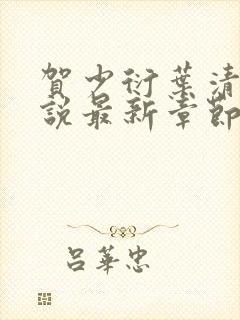 賀少衍葉清
說最新章節
呂華忠